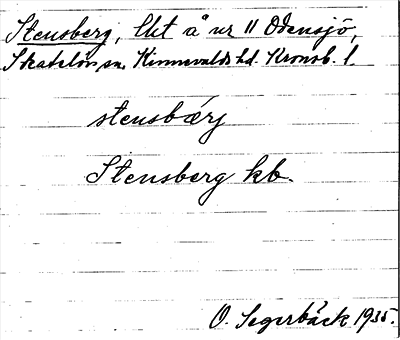 Stensberg, lht å nr 11 Odensjö,
Skatelövs sn. Kinnevalds hd. Kronob. l.
stensbærj
Stensberg kb.
O. Segerbäck 1935.